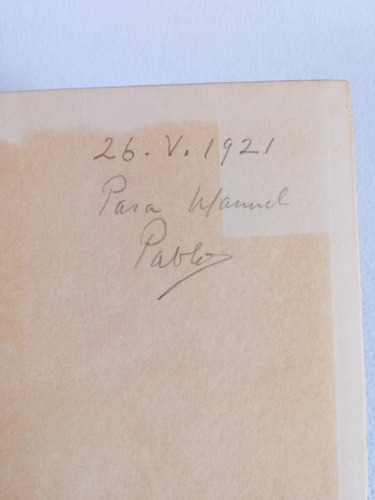 26. V. 1921
Para Manuel
Pablo